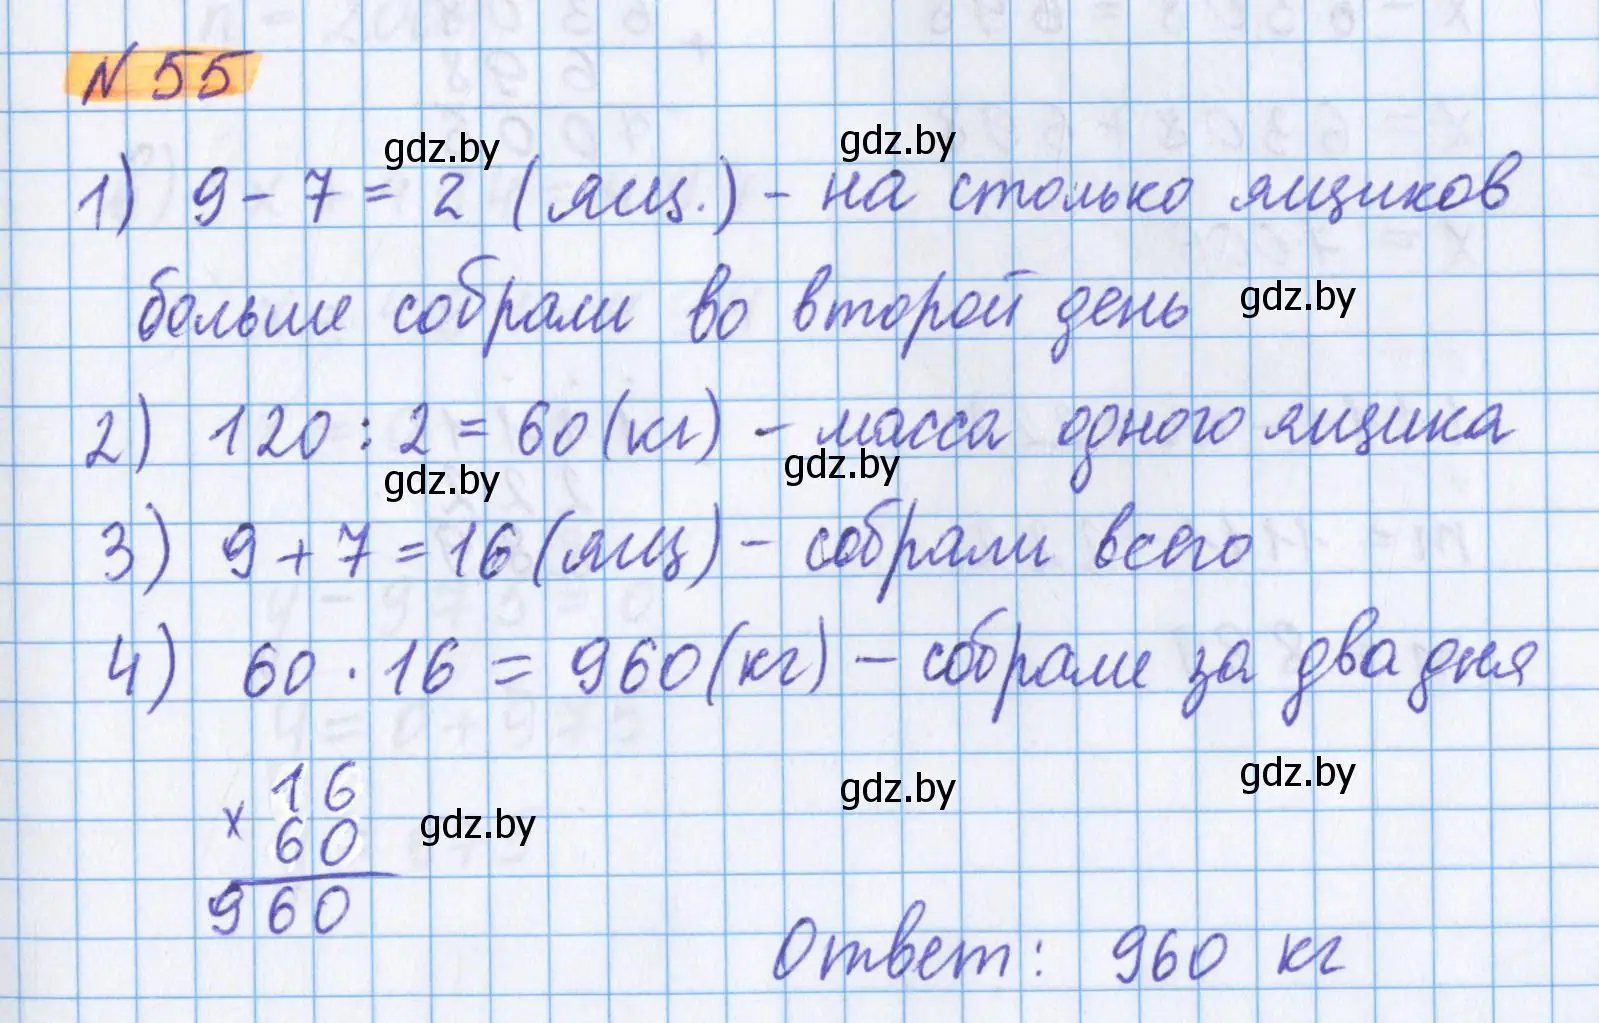 N 55
gdz.by gdz.by
1) 9 - 7 = 2 (ящ.) - на столько ящиков
больше собрали во второй день gdz.by
2) 120 : 2 = 60 (кг) - масса одного ящика
gdz.by gdz.by
3) 9 + 7 = 16 (ящ) - собрали всего
4) 60 · 16 = 960 (кг) - собрали за два дня
gdz.by gdz.by
16
× 60 gdz.by
960
Ответ: 960 кг